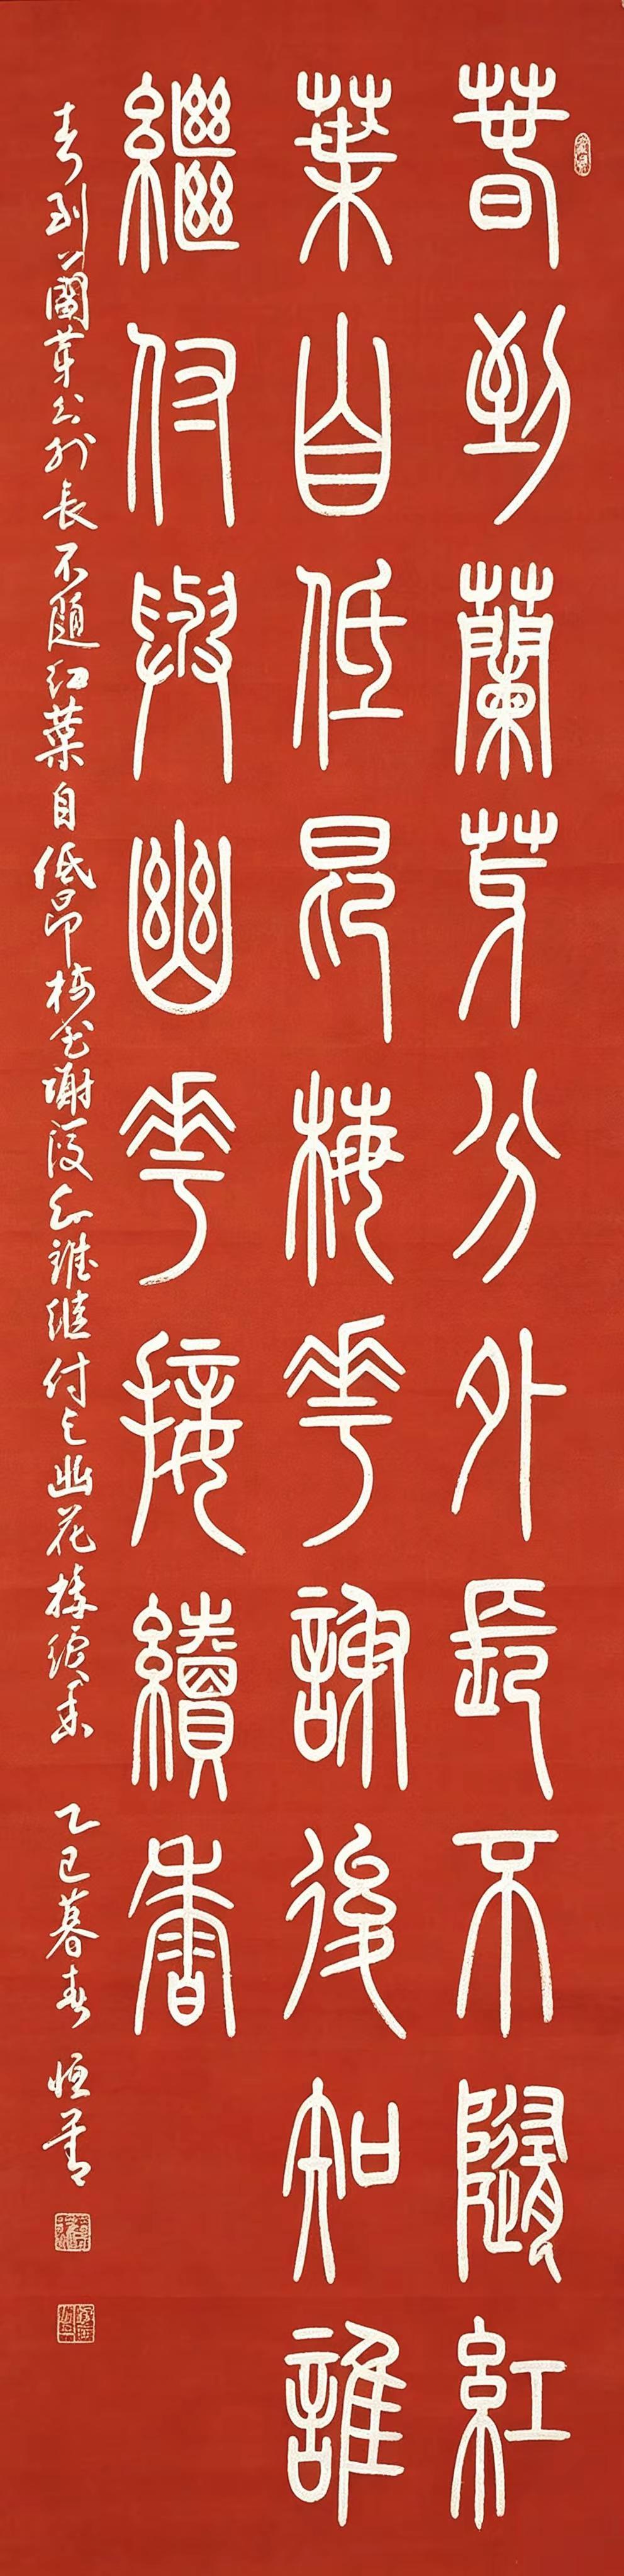 春到蘭芽分外長不隨紅
葉自低昂梅花謝後知誰
繼付與幽花接續香
春到蘭芽分外長不隨紅葉自低昂梅花謝後知誰继付与幽花接續香 乙巳暮春 恒善